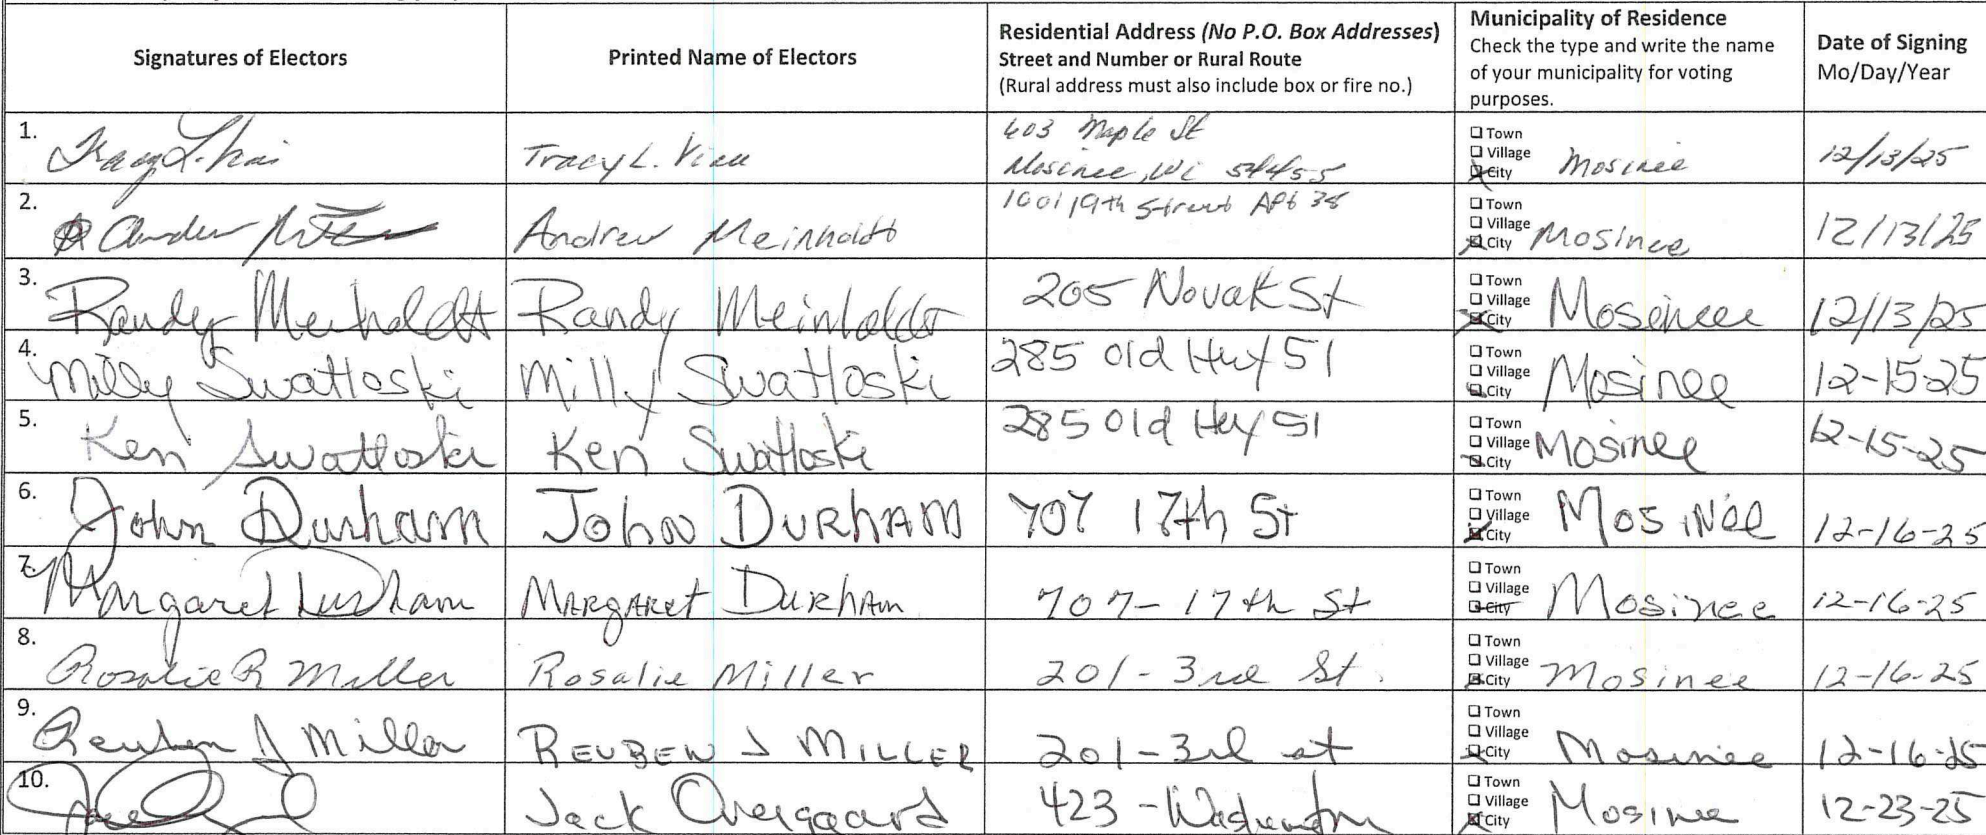 Signatures of Electors
Printed Name of Electors
Residential Address (No P.O. Box Addresses)
Street and Number or Rural Route
(Rural address must also include box or fire no.)
Municipality of Residence
Check the type and write the name
of your municipality for voting
purposes.
Date of Signing
Mo/Day/Year
1.
Tracy L.
Tracy L.
603 Maple St
Mosinee, Wi 54455
Town
Village
City
Mosinee
12/13/25
2.
Andrew
Andrew Meinholdt
1001 19th Street Apt 38
Town
Village
City
Mosinee
12/13/25
3.
Randy Meinholdt
Randy Meinholdt
205 Novak St
Town
Village
City
Mosinee
12/13/25
4.
Milly Swatloski
Milly Swatloski
285 Old Hwy 51
Town
Village
City
Mosinee
12-15-25
5.
Ken Swatloski
Ken Swatloski
285 Old Hwy 51
Town
Village
City
Mosinee
12-15-25
6.
John Durham
John DURHAM
707 17th St
Town
Village
City
Mosinee
12-16-25
7.
Margaret Durham
MARGARET DURHAM
707-17th St
Town
Village
City
Mosinee
12-16-25
8.
Rosalie R Miller
Rosalie Miller
201-3rd St.
Town
Village
City
Mosinee
12-16-25
9.
Reuben J Miller
REUBEN J MILLER
201-3rd st
Town
Village
City
Mosinee
12-16-25
10.
Jack Overgaard
423 - Washington
Town
Village
City
Mosinee
12-23-25